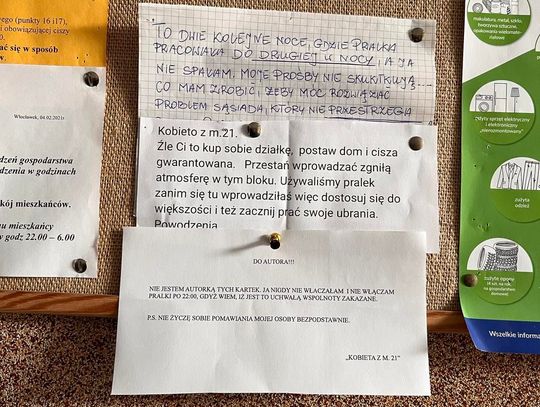 ego (punkty 16 i 17),
i obowiązującej ciszy
ać się w sposób
Włocławek, 04.02.2021r
dzeń gospodarstwa
dzenia w godzinach
kój mieszkańców.
nu mieszkańcy
w godz 22.00 – 6.00
TO DWIE KOLEJNE NOCE, GDZIE PRALKA
PRACOWAŁA DO DRUGIEJ W NOCY, A JA
NIE SPAŁAM. MOJE PROŚBY NIE SKUTKUJĄ...
CO MAM ZROBIĆ, ŻEBY MÓC ROZWIĄZAĆ
PROBLEM SĄSIADA, KTÓRY NIE PRZESTRZEGA
Kobieto z m.21.
Źle Ci to kup sobie działkę, postaw dom i cisza
gwarantowana. Przestań wprowadzać zgniłą
atmosferę w tym bloku. Używaliśmy pralek
zanim się tu wprowadziłaś więc dostosuj się do
większości i też zacznij prać swoje ubrania.
Powodzenia
DO AUTORA!!!
NIE JESTEM AUTORKĄ TYCH KARTEK. JA NIGDY NIE WŁĄCZAŁAM I NIE WŁĄCZAM
PRALKI PO 22:00, GDYŻ WIEM, IŻ JEST TO UCHWAŁĄ WSPOLNOTY ZAKAZANE.
P.S. NIE ŻYCZĘ SOBIE POMAWIANIA MOJEJ OSOBY BEZPODSTAWNIE.
„KOBIETA Z M. 21”
makulatura, metal, szkło,
tworzywa sztuczne,
opakowania wielomate-
riałowe
zużyty sprzęt elektryczny
i elektroniczny
"nierozmontowany"
zużyta
odzież
zużyte opony
(4 szt. na rok,
na gospodarstwo
domowe)
Wszelkie informa